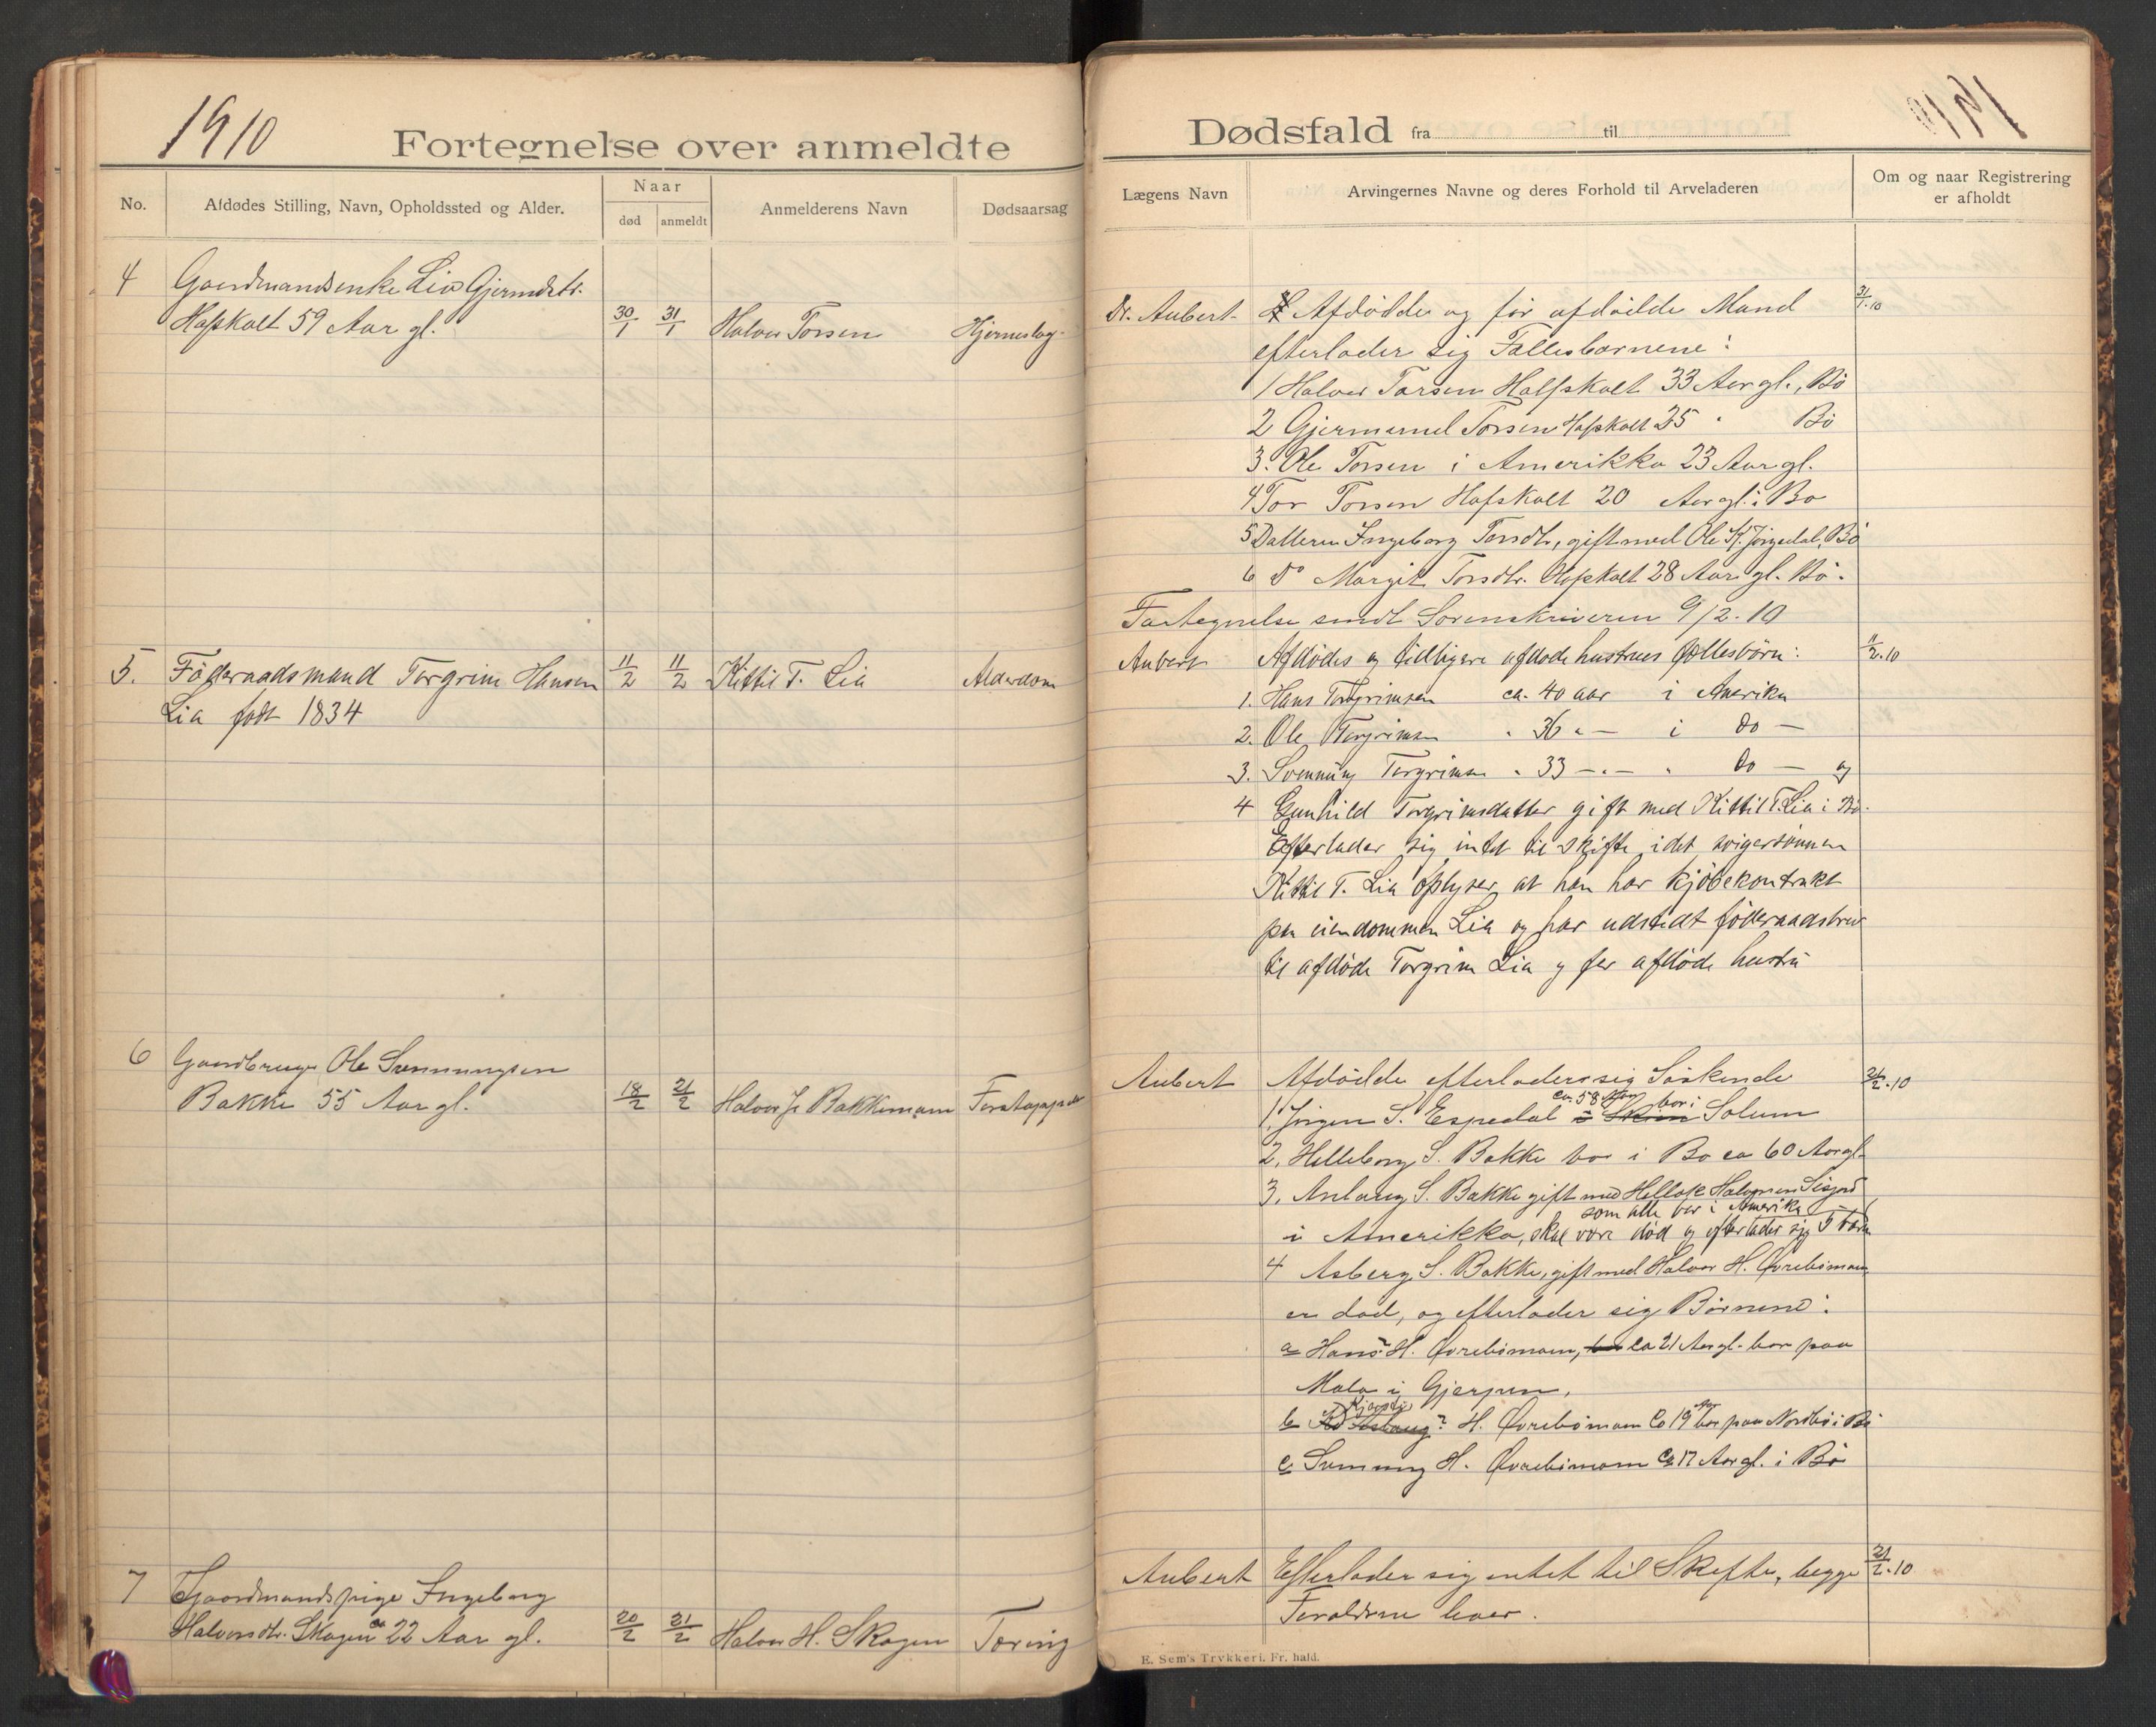 1910
Fortegnelse over anmeldte
No.
Afdødes Stilling, Navn, Opholdssted og Alder.
Naar
død
anmeldt
Anmelderens Navn
Dødsaarsag
4 Gaardmandsenke Liv Gjermdstr.
Hafskalt 59 Aar gl. 30/1 31/1 Halvor Torsen Hjerneslag
5. Föderaadsmand Torgrim Hansen 11/2 11/2 Kittil T. Lia Alderdom
Lia født 1834
6 Gaardbruger Ole Svenningsen
Bakke 55 Aar gl. 18/2 21/2 Halvor J. Bakkemoen
7 Gaardmandspige Ingeborg
Halvorsdtr. Skogen ca 22 Aar gl. 20/2 21/2 Halvor H. Skogen Tæring
Dødsfald fra til
Lægens Navn
Arvingernes Navne og deres Forhold til Arveladeren
Om og naar Registrering
er afholdt
Dr. Aubert Afdödde og för afdödde Mand 31/1.10
efterlader sig Fællesbørnene:
1 Halvor Torsen Hafskalt 33 Aar gl., Bö
2 Gjermund Torsen Hafskalt 35 " Bö
3. Ole Torsen i Amerikka 23 Aar gl.
4 Tor Torsen Hafskalt 20 Aar gl. i Bø
5 Datteren Ingeborg Torsdtr, gift med Ole K. Jörgedal, Bö
6 Do Margit Torsdtr. Hafskalt 28 Aar gl. Bö.
Fortegnelse sendt Sorenskriveren 9/2.10
Aubert Afdødes og tidligere afdøde hustrues fællesbörn: 11/2.10
1. Hans Torgrimsen ca. 40 aar i Amerika
2. Ole Torgrimsen " 36 " — i do —
3. Svenning Torgrimsen " 33 — " — " do — og
4 Gunhild Torgrimsdatter gift med Kittil T. Lia i Bö.
Efterlader sig intet til skifte, idet svigersönnen
Kittil T. Lia oplyser at han har kjöbekontrakt
paa eiendommen Lia og har udstedt föderaadsbrev
til afdöde Torgrim Lia og før afdöde hustru
Aubert Afdödde efterlader sig Söskende 21/2.10
ca. 58 Aar bor i
1, Jörgen S. Espedal i Skien Solum
2, Helleborg S. Bakke bor i Bø ca 60 Aar gl.
3, Aslaug S. Bakke gift med Hellek Halvorsen
som alle bor i Amerika
i Amerikka, skal være död og efterlader sig 5 børn
4 Asberg S. Bakke, gift med Halvor H. Øvrebömoen
er død, og efterlader sig Börnene:
a Hans H. Øvrebömoen, ca 21 Aar gl. bor paa
Mæla i Gjerpen.
Kjersti
b Aslaug? H. Øvrebömoen ca 19 Aar bor paa Nordbö i Bö
c Svenning H. Øvrebömoen ca 17 Aar gl. i Bö
Aubert Efterlader sig intet til Skifte, begge 21/2.10
Foraldrene lever.
E. Sem's Trykkeri, Fr. hald.